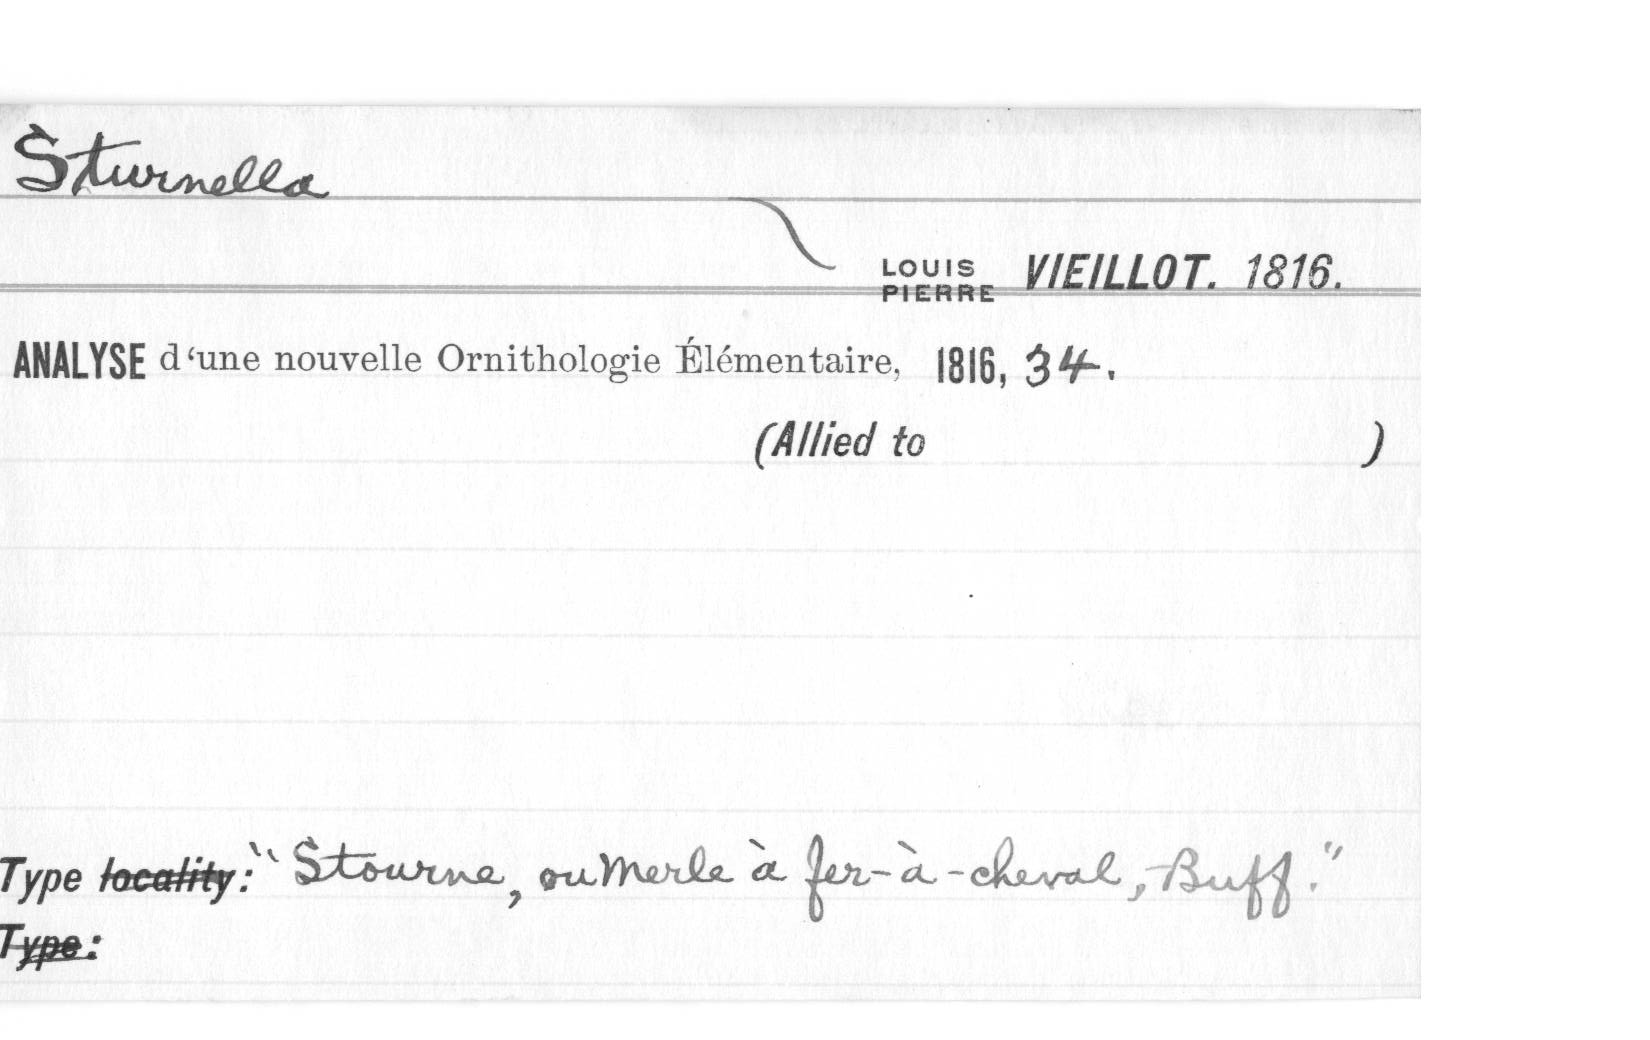 Sturnella
LOUIS PIERRE VIEILLOT. 1816.
ANALYSE d‘une nouvelle Ornithologie Élémentaire, 1816, 34.
(Allied to )
Type locality: "Stourne, ou Merle à fer-à-cheval, Buff."
Type: